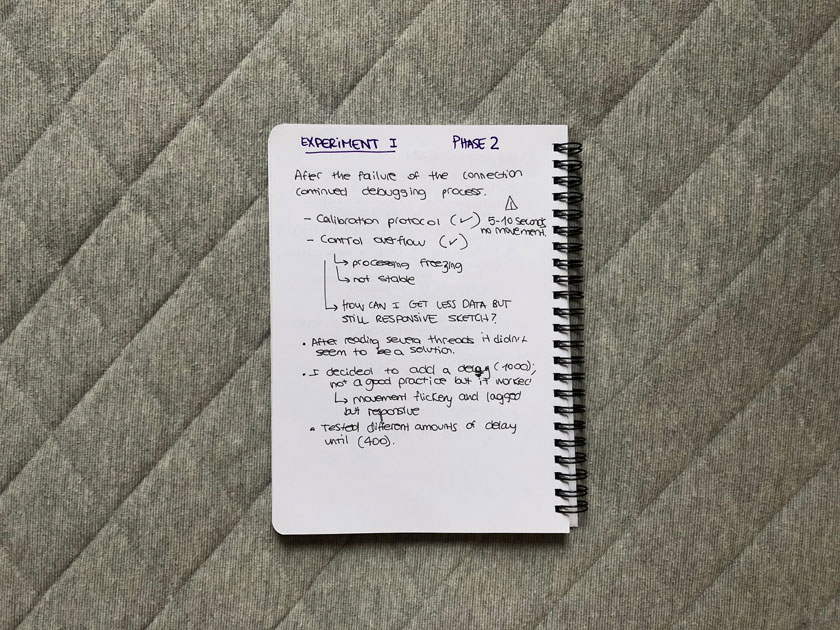 EXPERIMENT I PHASE 2
After the failure of the connection
continued debugging process.
- Calibration protocol (✓) 5-10 seconds
no movement.
- Control overflow (✓)
↳ processing freezing
↳ not stable
↳ HOW CAN I GET LESS DATA BUT
STILL RESPONSIVE SKETCH?
• After reading severa threads it didn't
seem to be a solution.
• I decided to add a delay (1000);
not a good practice but it worked
↳ movement flickery and lagged
but responsive
• Tested different amounts of delay
until (400).